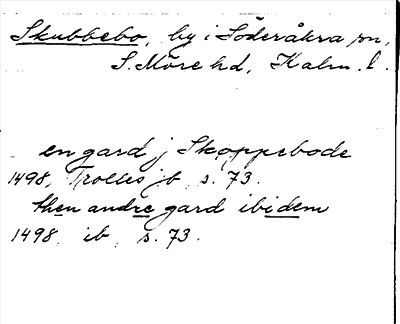 Skubbebo, by i Söderåkra sn,
S. Möre hd, Kalm. l.
en gard j Skoppebode
1498, Trolles jb, s. 73.
then andre gard ibidem
1498, ib, s. 73.